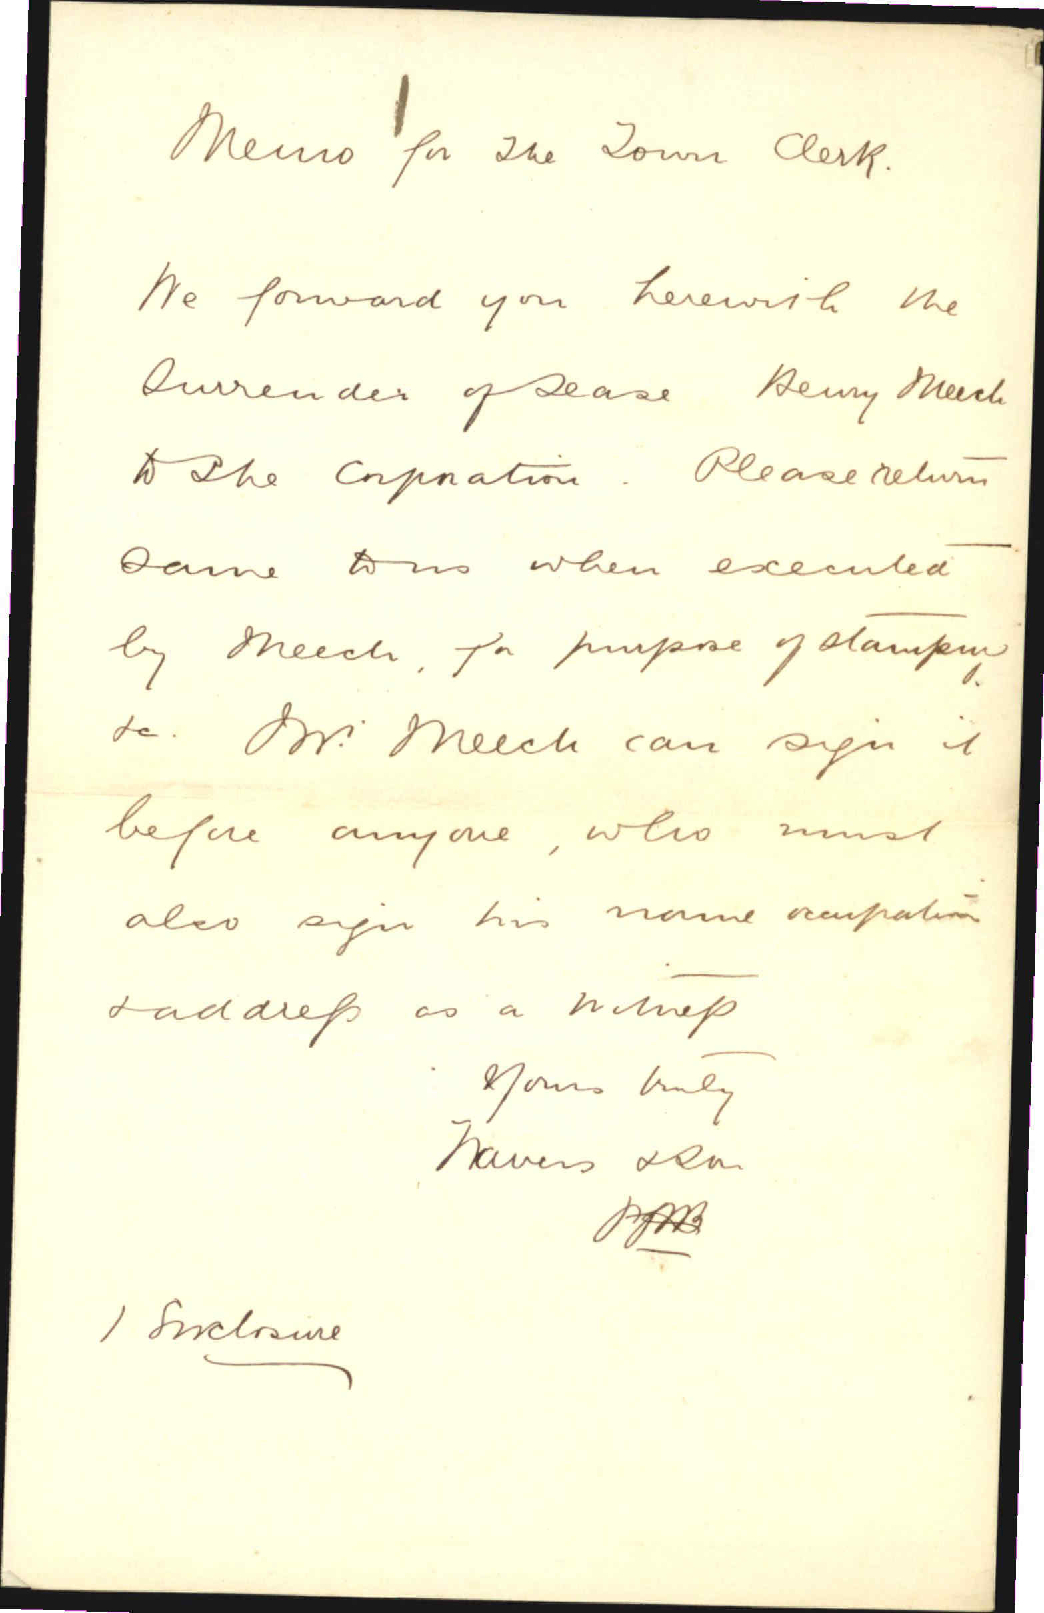 Memo for The Town Clerk.
We forward you herewith the
Surrender of Lease Henry Meech
to The Corporation. Please return
same to us when executed
by Meech, for purpose of stamping
&c. Mr. Meech can sign it
before anyone, who must
also sign his name occupation
& address as a Witness
Yours truly
Travers & Son
1 Enclosure